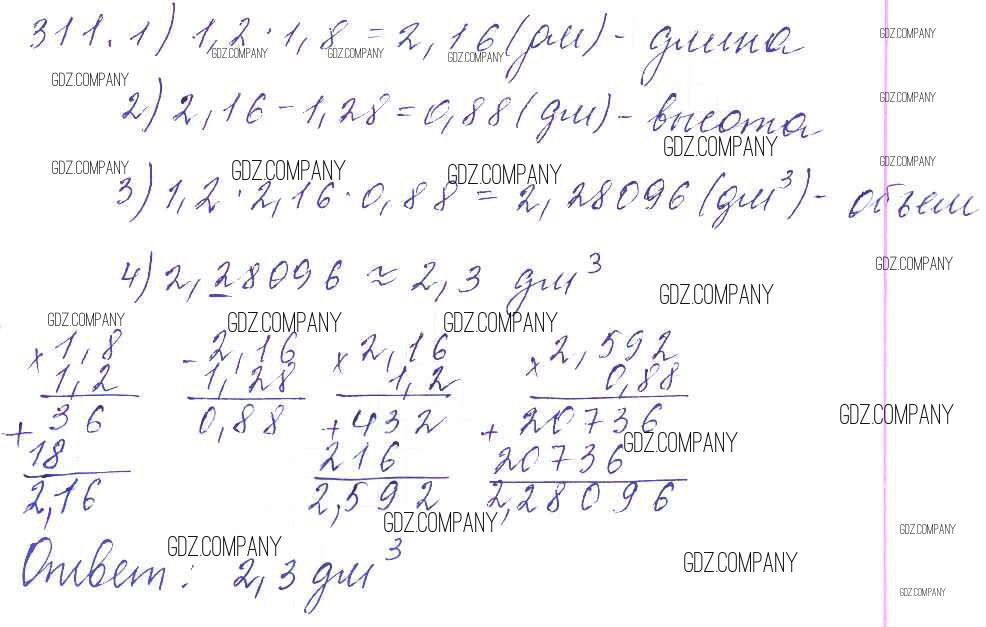 311. 1) 1,2 · 1,8 = 2,16 (дм) - длина
2) 2,16 - 1,28 = 0,88 (дм) - высота
3) 1,2 · 2,16 · 0,88 = 2,28096 (дм³) - объем
4) 2,28096 ≈ 2,3 дм³
× 1,8 - 2,16 × 2,16 × 2,592
1,2 1,28 1,2 0,88
+ 36 0,88 + 432 + 20736
18 216 20736
2,16 2,592 2,28096
Ответ: 2,3 дм³
GDZ.COMPANY GDZ.COMPANY GDZ.COMPANY GDZ.COMPANY
GDZ.COMPANY GDZ.COMPANY
GDZ.COMPANY
GDZ.COMPANY GDZ.COMPANY GDZ.COMPANY GDZ.COMPANY
GDZ.COMPANY
GDZ.COMPANY
GDZ.COMPANY GDZ.COMPANY GDZ.COMPANY
GDZ.COMPANY
GDZ.COMPANY
GDZ.COMPANY GDZ.COMPANY
GDZ.COMPANY GDZ.COMPANY
GDZ.COMPANY